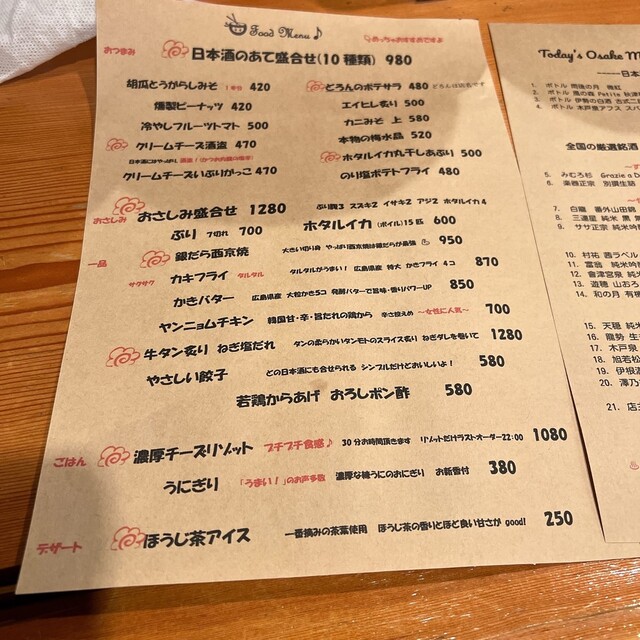 Food Menu♪
めっちゃおすすめですよ
おつまみ
日本酒のあて盛合せ(10種類) 980
胡瓜とうがらしみそ 420
燻製ピーナッツ 420
冷やしフルーツトマト 500
クリームチーズ酒盗 470
クリームチーズいぶりがっこ 470
どろんのポテサラ 480
エイヒレ炙り 500
カニみそ 上 580
本物の梅水晶 520
ホタルイカ丸干しあぶり 500
のり塩ポテトフライ 480
おさしみ
おさしみ盛合せ 1280 ぶり腹3 スズキ2 イサキ2 アジ2 ホタルイカ4
ぶり 7切れ 700
ホタルイカ (ボイル)15匹 600
一品
銀だら西京焼 大きい切り身 やっぱり西京焼は銀だらが最強 950
サクサク カキフライ タルタル タルタルがうまい! 広島県産 特大 かきフライ 4コ 870
かきバター 広島県産 大粒かき5コ 発酵バターで旨味・香りパワーUP 850
ヤンニョムチキン 韓国甘・辛・旨だれの鶏から 辛さ控えめ 〜女性に人気〜 700
牛タン炙り ねぎ塩だれ タンの柔らかいタンモトのスライス炙り ねぎダレを巻いて 1280
やさしい餃子 どの日本酒にも合せられる シンプルだけどおいしいよ! 580
若鶏からあげ おろしポン酢 580
ごはん
濃厚チーズリゾット プチプチ食感♪ 30分お時間頂きます リゾットだけラストオーダー22:00 1080
うにぎり 「うまい!」のお声多数 濃厚な練うにのおにぎり お新香付 380
デザート
ほうじ茶アイス 一番摘みの茶葉使用 ほうじ茶の香りとほど良い甘さが good! 250
Today's Osake M
-----日本
1. ボトル 雨後の月 微紅
2. ボトル 風の森 Petits 秋津
3. ボトル 伊勢の白酒 古式二
4. ボトル 木戸泉アフス スパ
全国の厳選銘酒
5. みむろ杉 Grazie a D
6. 楽器正宗 別撰生酛
7. 白龍 番外山田錦
8. 三連星 純米 黒 無
9. ササ正宗 純米吟醸
10. 村祐 茜ラベル
11. 富翁 純米吟
12. 會津宮泉 純米
13. 遊穂 山おろ
14. 和の月 有機
15. 天穏 純米
16. 龍勢 生
17. 木戸泉
18. 旭若松
19. 伊根満
20. 澤乃
21. 店主